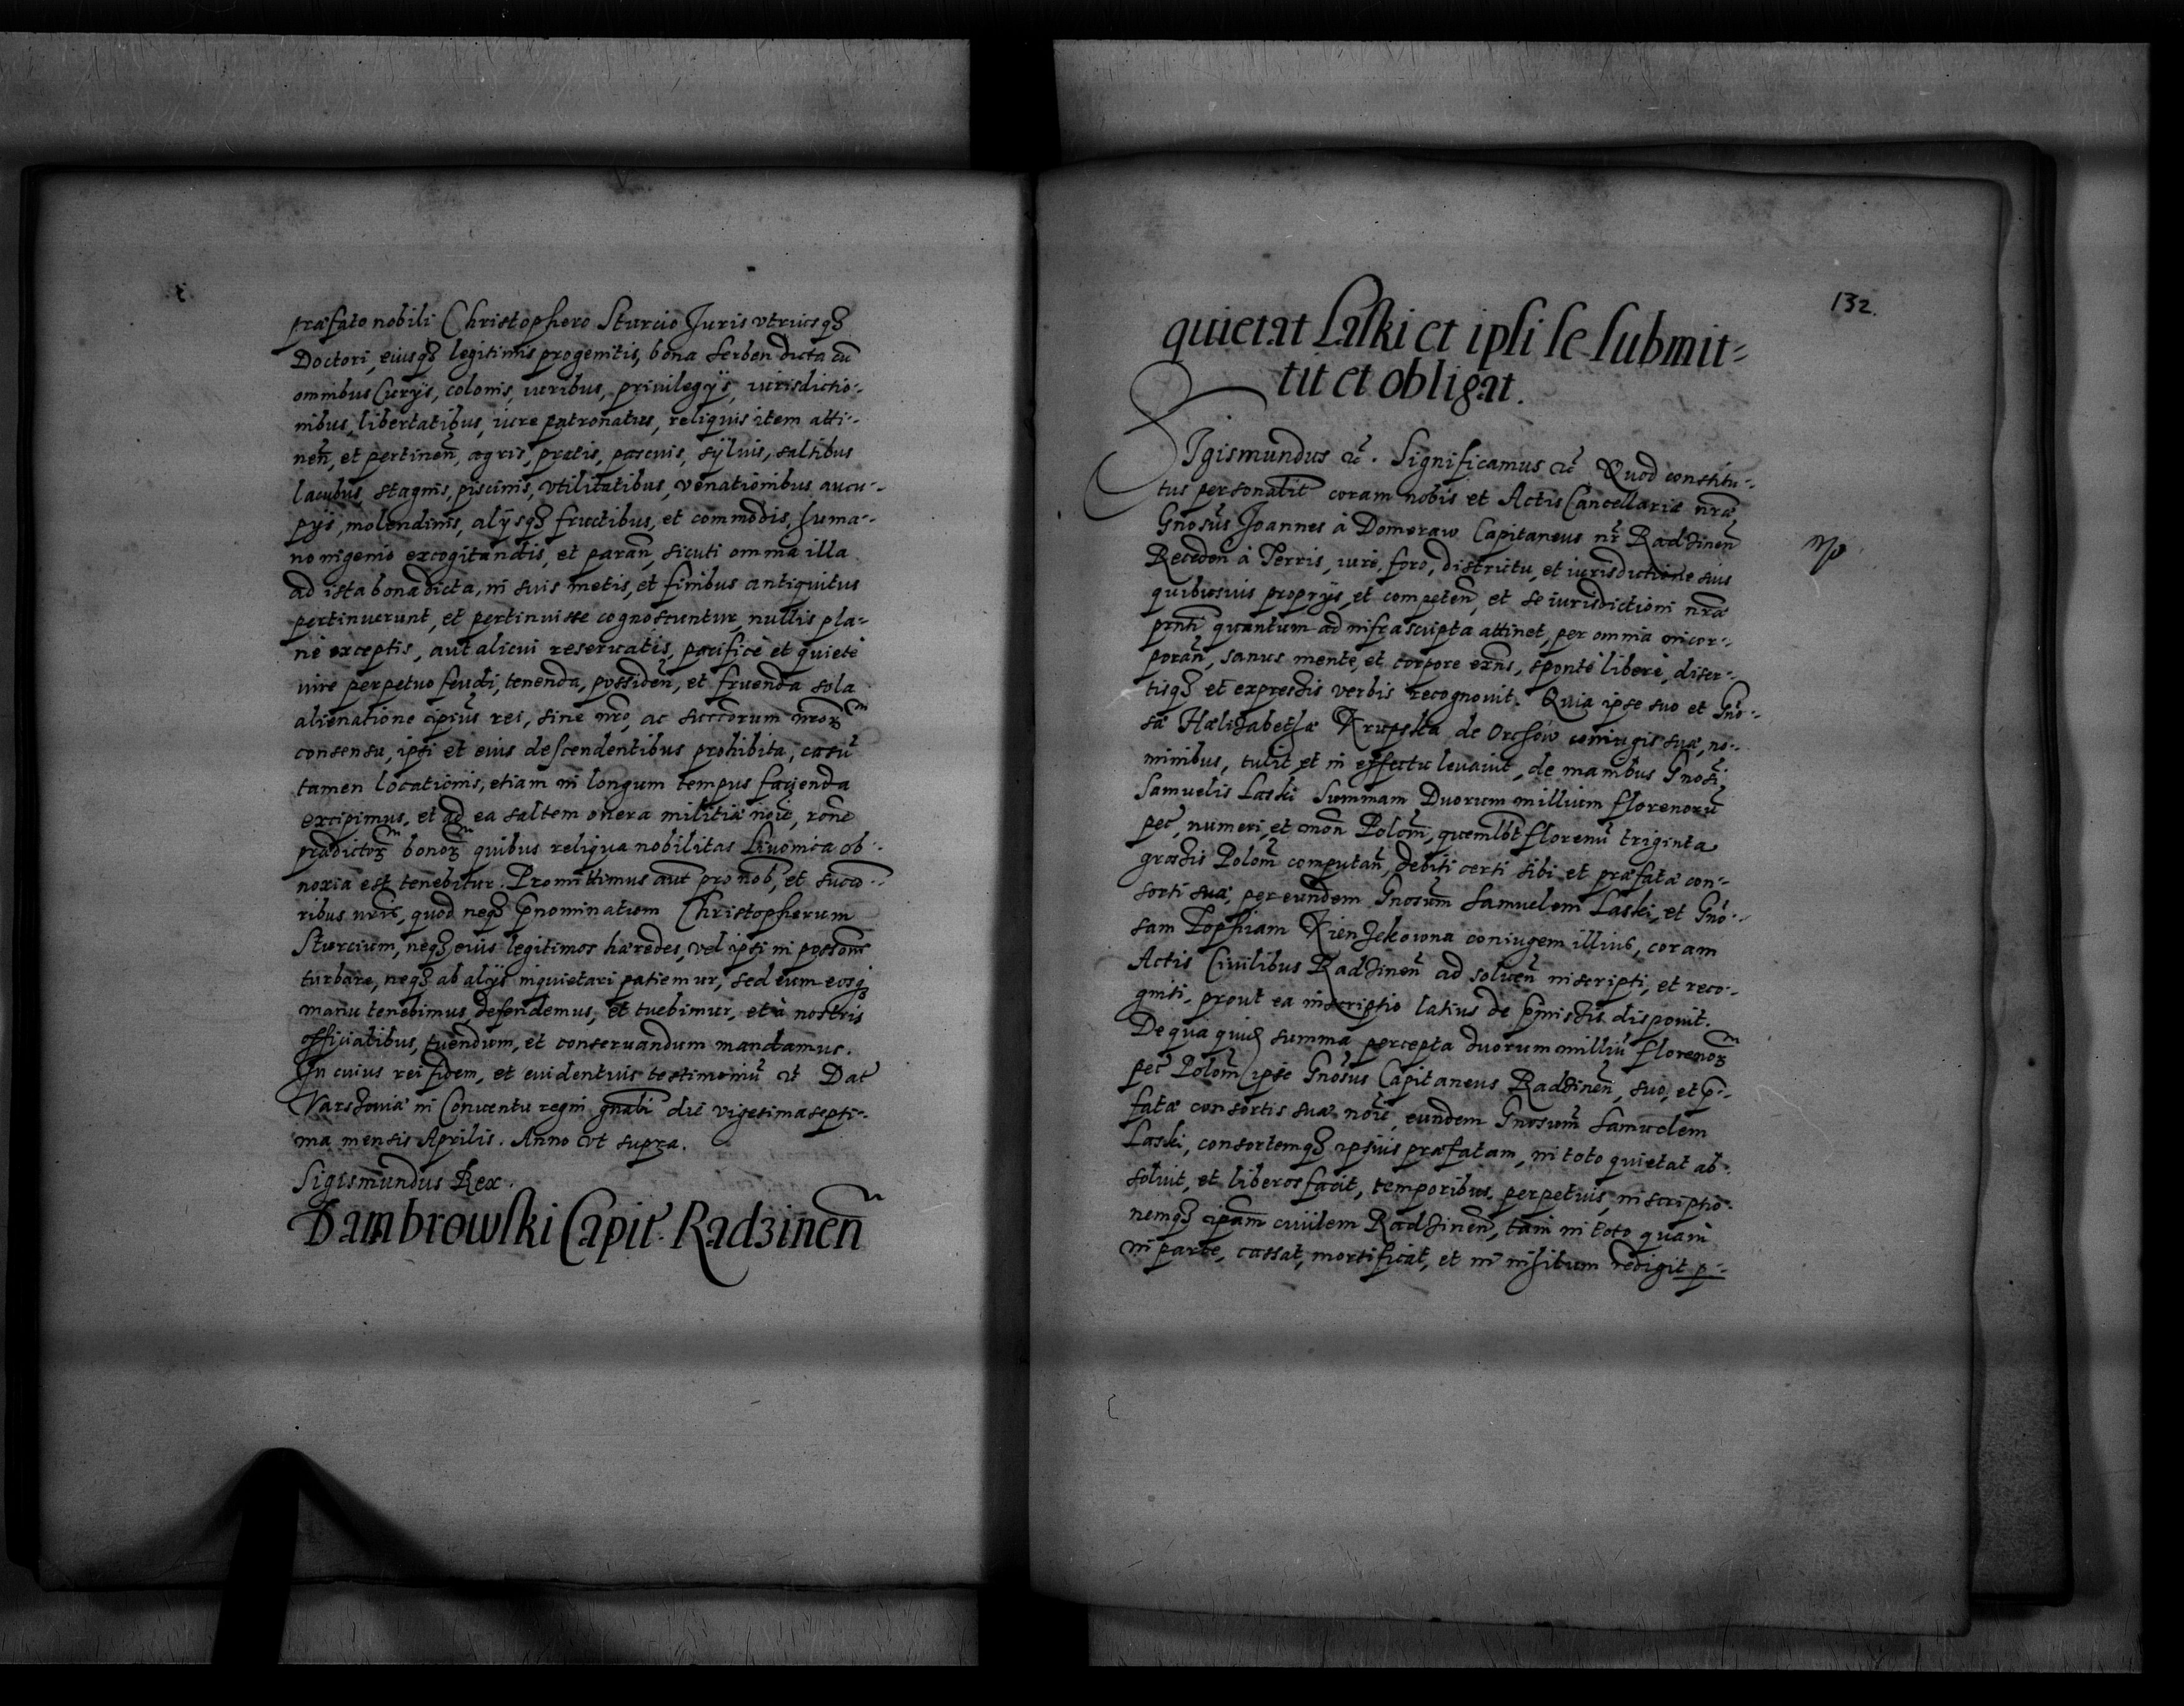 præfato nobili Christophoro Sturcio Juris vtriusqꝫ
Doctori, eiusqꝫ legitimis progenitis, bona Serben dicta cū
omnibus Curijs, colonis, iuribus, priuilegijs, iurisdictio-
nibus, libertatibus, iure patronatus, reliquis item atti-
neñ, et pertineñ, agris, pratis, pascuis, syluis, saltibus
lacubus, stagnis, piscinis, vtilitatibus, venationibus aucu-
pijs, molendinis, alijsqꝫ fructibus, et commodis, huma-
no ingenio excogitandis, et parañ, sicuti omnia illa
ad ista bona dicta, in suis metis, et finibus antiquitus
pertinuerunt, et pertinuisse cognoscuntur, nullis pla-
nè exceptis, aut alicui reseruatis, pacificè et quietè
iure perpetuo feudi, tenenda, possideñ, et fruenda sola
alienatione ipius rei, sine nro, ac succorum nroꝝ
consensu, ipsi et eius descendentibus prohibita, casu
tamen locationis, etiam in longum tempus facienda
excipimus, et ad ea saltem onera militiæ noie, rone
prædictoꝝ bonoꝝ quibus reliqua nobilitas Liuonica ob-
noxia est tenebitur. Promittimus aut pro nob, et succo-
ribus nris, quod neqꝫ pnominatum Christopherum
Sturcium, neqꝫ eius legitimos hæredes, vel ipsi in possone
turbare, neqꝫ ab alijs inquietari patiemur, sed eum eosqꝫ
manu tenebimus, defendemus, et tuebimur, et à nostris
officialibus, tuendum, et conseruandum mandamus.
In cuius rei fidem, et euidentius testimoniū etc Dat
Varsouiæ in Conuentu regni gnali die vigesima septi-
ma mensis Aprilis. Anno vt supra.
Sigismundus Rex.
Dambrowski Capit. Radzineñ
132.
quietat Laski et ipsi se submit-
tit et obligat.
SIgismundus etc. Significamus etc Quod constitu-
tus personalit coram nobis et Actis Cancellariæ nræ
Gnosus Joannes à Domeraw Capitaneus nr Radzineñ
Recedeñ à Terris, iure, foro, districtu, et iurisdictione suis
quibusuis proprijs, et competeñ, et se iurisdictioni nræ
pnti quantum ad infrascripta attinet, per omnia incor-
porañ, sanus mente, et corpore exns, sponte libere, diser-
tisqꝫ et expressis verbis recognouit. Quia ipse suo et Gno-
sæ Hælizabethæ Krupska de Orchow coniugis suæ, no-
minibus, tulit et in effectu leuauit, de manibus Gnosi
Samuelis Laski Summam Duorum millium florenorū
pec, numeri, et moñ Poloni, quemlbt florenū triginta
grossis Poloni computañ, debiti certi sibi et præfatæ con-
sorti suæ, per eundem Gnosum Samuelem Laski, et Gno-
sam Zophiam coniugem illius, coram
Actis Ciuilibus Radzineñ ad solueñ inscripti, et reco-
gniti, prout ea inscriptio latius de pmissis disponit.
De qua quidē summa percepta duorum milliū florenoꝝ
pec Poloni ipse Gnosus Capitaneus Radzineñ, suo, et p-
fatæ consortis suæ noie, eundem Gnosum Samuelem
Laski, consortemqꝫ ipsius præfatam, in toto quietat ab-
soluit, et liberos facit, temporibus perpetuis, inscriptio-
nemqꝫ ipam ciuilem Radzineñ, tam in toto quam
in parte, cassat, mortificat, et in nihilum redigit p-